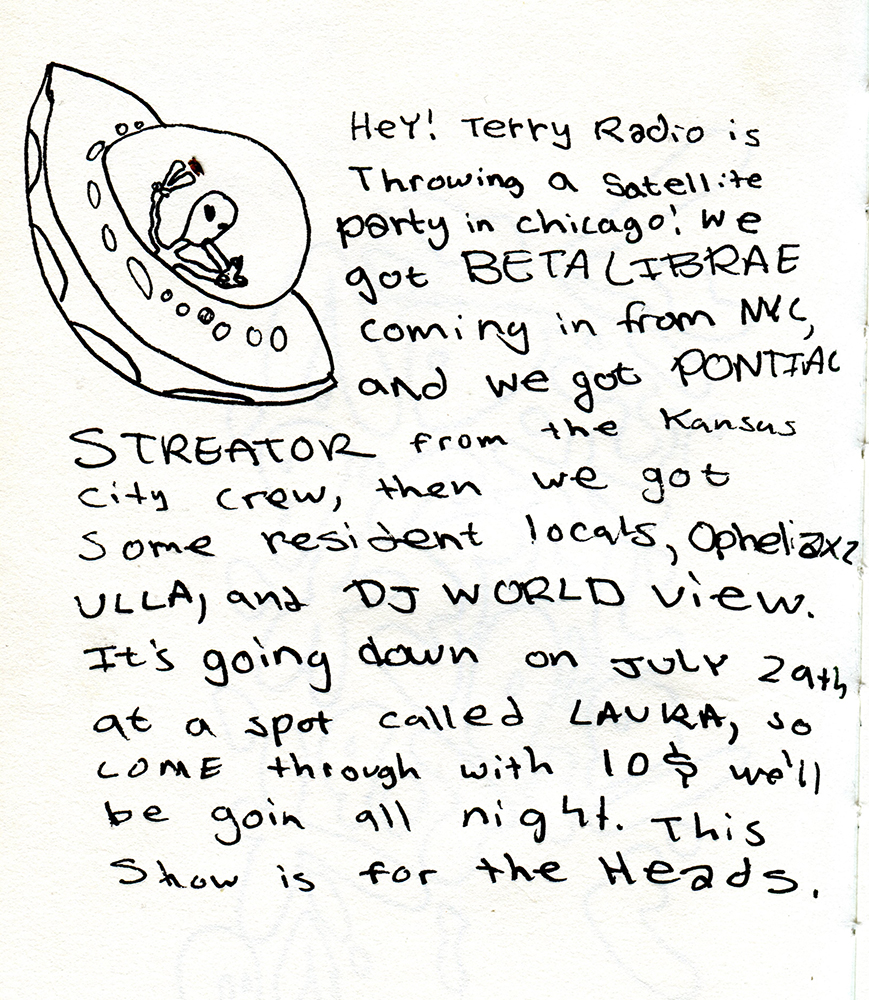 Hey! Terry Radio is
Throwing a Satellite
party in chicago! We
got BETA LIBRAE
coming in from NYC,
and we got PONTIAC
STREATOR from the Kansus
City crew, then we got
Some resident locals, Opheliaxz
ULLA, and DJ WORLD view.
It's going down on JULY 29th,
at a spot called LAURA, so
COME through with 10$ we'll
be goin all night. This
Show is for the Heads.